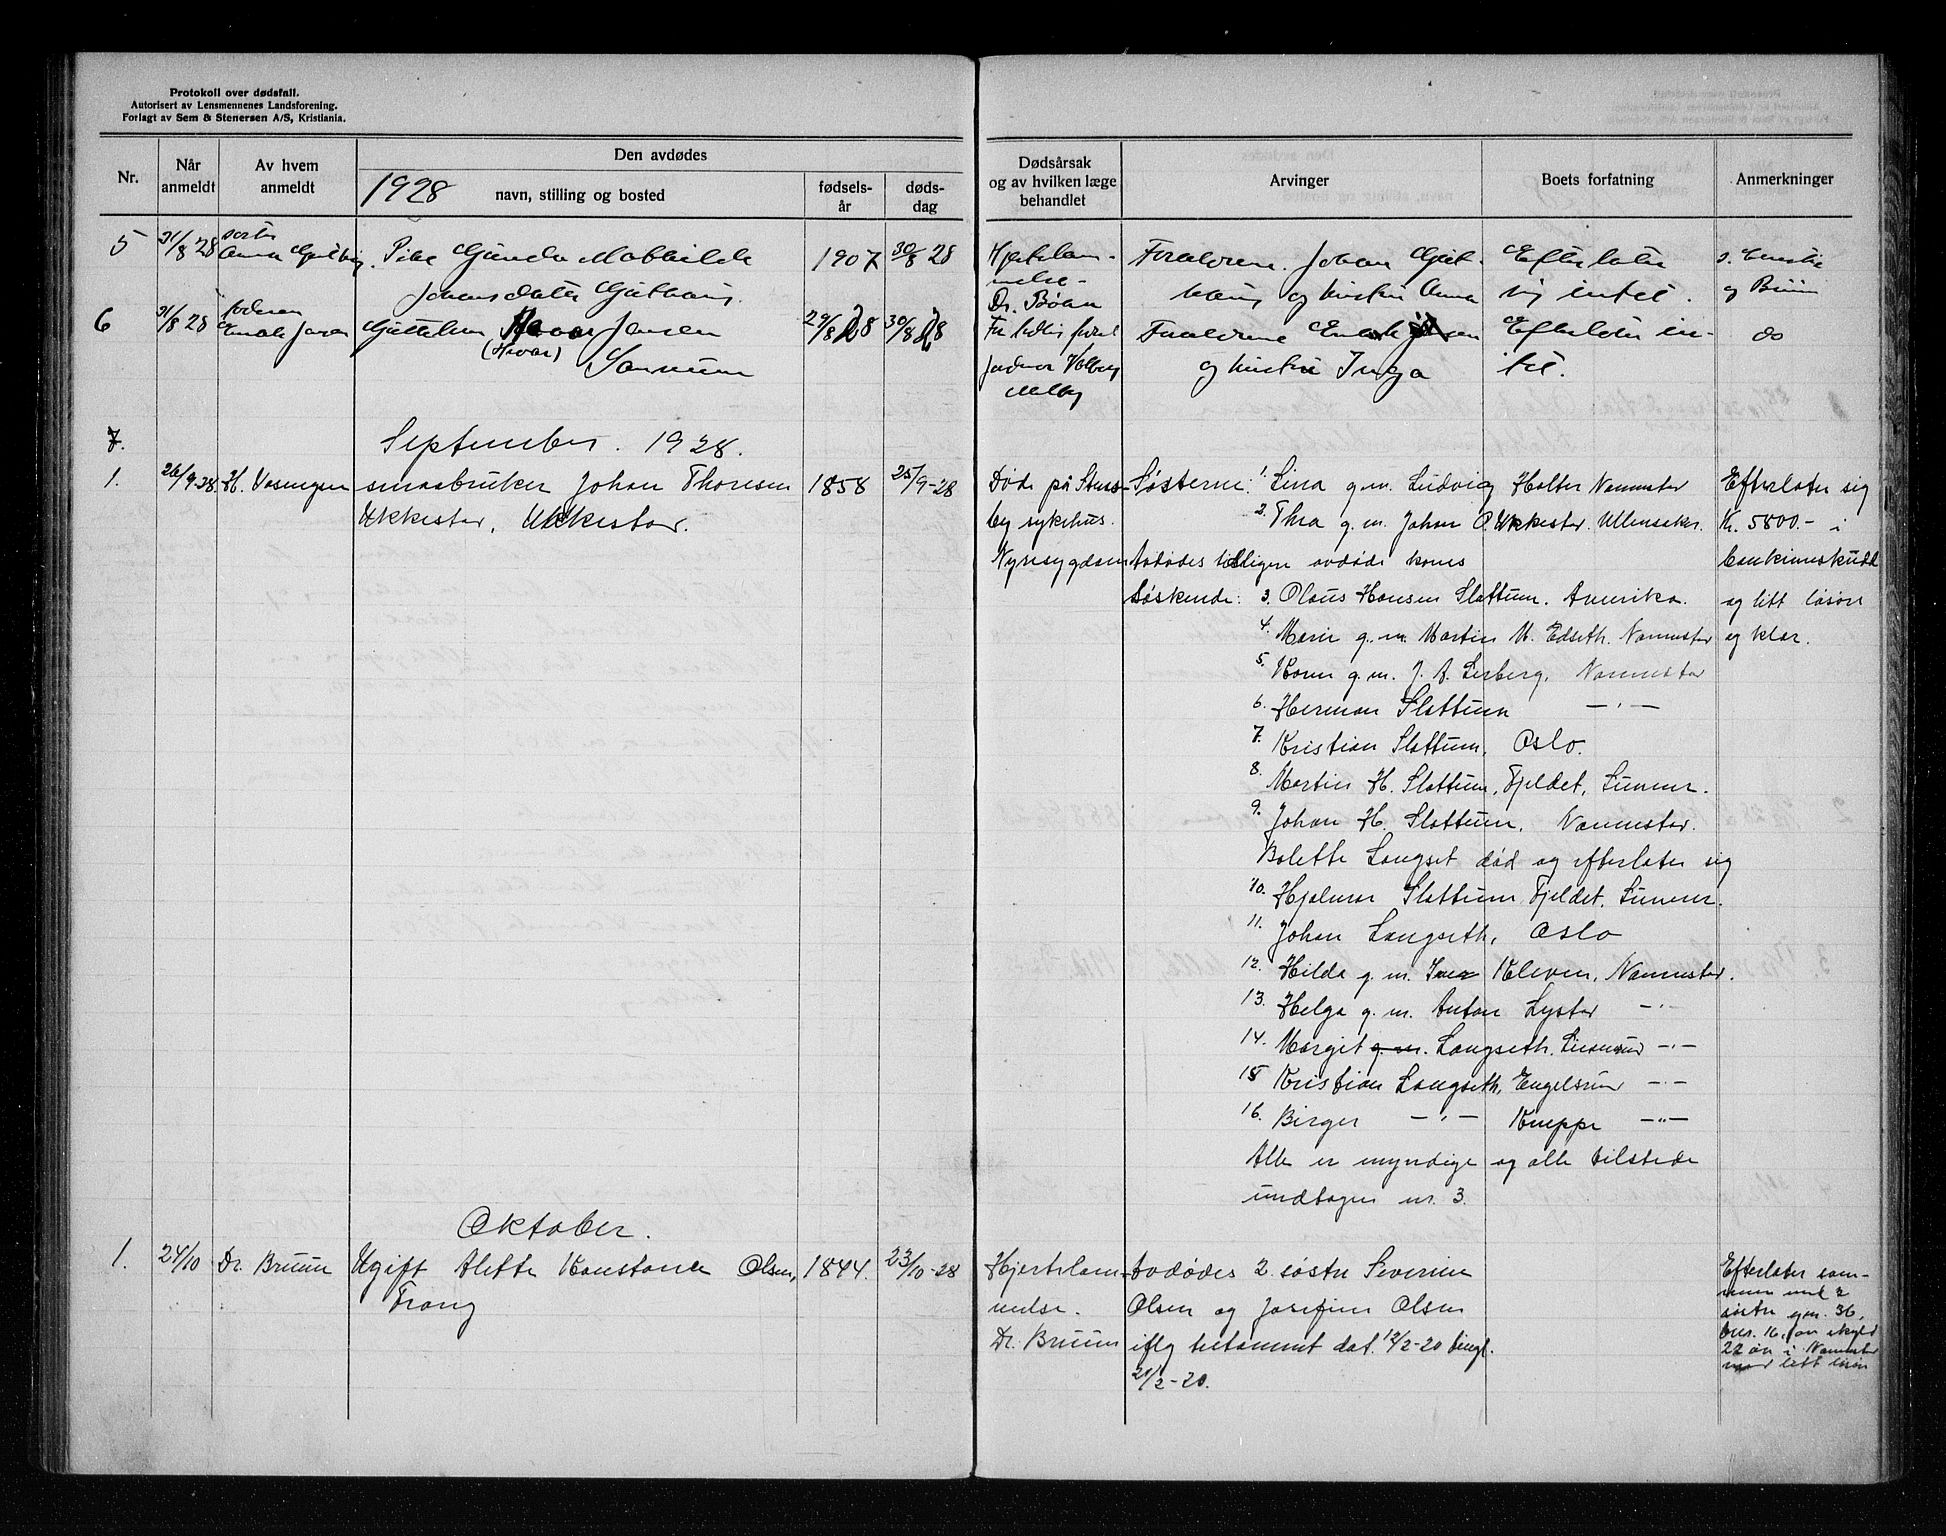 Protokoll over dødsfall.
Autorisert av Lensmennenes Landsforening.
Forlagt av Sem & Stenersen A/S, Kristiania.
Nr.
Når anmeldt
Av hvem anmeldt
Den avdødes
1928 navn, stilling og bosted
fødsels-år
døds-dag
Dødsårsak
og av hvilken læge
behandlet
Arvinger
Boets forfatning
Anmerkninger
5 31/8 28 Anna Pike Gunda Mathilde 1907 30/8 28
Johansdater
Hjertelam-
melse -
Dr. Bøhn
Forældrene. Johan
og hustru Anna
Efterlater
sig intet.
og Bruun
6 31/8 28 faderen
Gutteban Jensen 29/8 28 30/8 28
(Hvar)
Sannum
Forældrene
og hustru Inga
Efterlater in-
tet.
do
7.
September. 1928.
1. 26/9 28. H. Vasengen smaabruker Johan Thoresen 1858 25/9-28
Ukkestad, Ukkestad.
Døde på Stens-
by sykehus.
Nyresygdom
Søsterne: 1. Lina g.m. Ludvig Holter Nannestad
2. Thea g.m. Johan O. Ukkestad. Ullensaker.
Avdødes tidligere avdøde kones
søskende: 3. Olaus Hansen Slattum. Amerika.
4. Marie g.m. Martin M. Edseth. Nannestad
5. Karen g.m. J. A. Lerberg. Nannestad
6. Herman Slattum — " —
7. Kristian Slattum. Oslo.
8. Martin H. Slattum, Fjeldet, Sunner.
9. Johan H. Slattum. Nannestad.
Bolette Langset død og efterlater sig
10. Hjalmar Slattum Fjeldet. Sunner.
11. Johan Langseth, Oslo
12. Hilda g.m. Kleven, Nannestad.
13. Helga g.m. Anton Lystad — " —
14. Margit g.m. Langseth. — " —
15 Kristian Langseth, Engelsrud — " —
16. Birger — " — Kneppe — " —
Alle er myndige og alle tilstede
undtagen nr. 3.
Efterlater sig
Kr. 5800.- i
bankinnskudd
og litt løsøre
og klær.
Oktober.
1. 24/10 Dr. Bruun Ugift Alette Konstance Olsen, 1844. 23/10-28
Trang
Hjertelam-
melse.
Dr. Bruun
Avdødes 2 søstre Severine
Olsen og Josefine Olsen
iflg testament dat. 12/2-20 tingl.
21/2-20.
Efterlater sam-
men med 2
søstre gnr. 36,
bnr. 16, av skyld
22 øre i Nannestad
litt løsøre